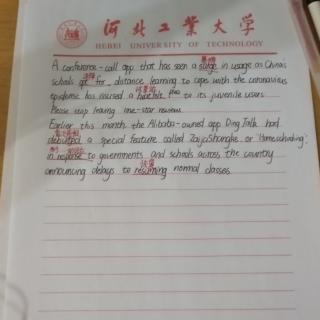 河北工业大学
HEBEI UNIVERSITY OF TECHNOLOGY
A conference-call app that has seen a surge in usage as China's
schools opt for distance learning to cope with the coronavirus
epidemic has issued a plea to its juvenile users:
Please stop leaving one-star reviews.
Earlier this month the Alibaba-owned app DingTalk had
debuted a special feature called ZaijiaShangke or 'Homeschooling'.
in response to governments and schools across the country
announcing delays to resuming normal classes.